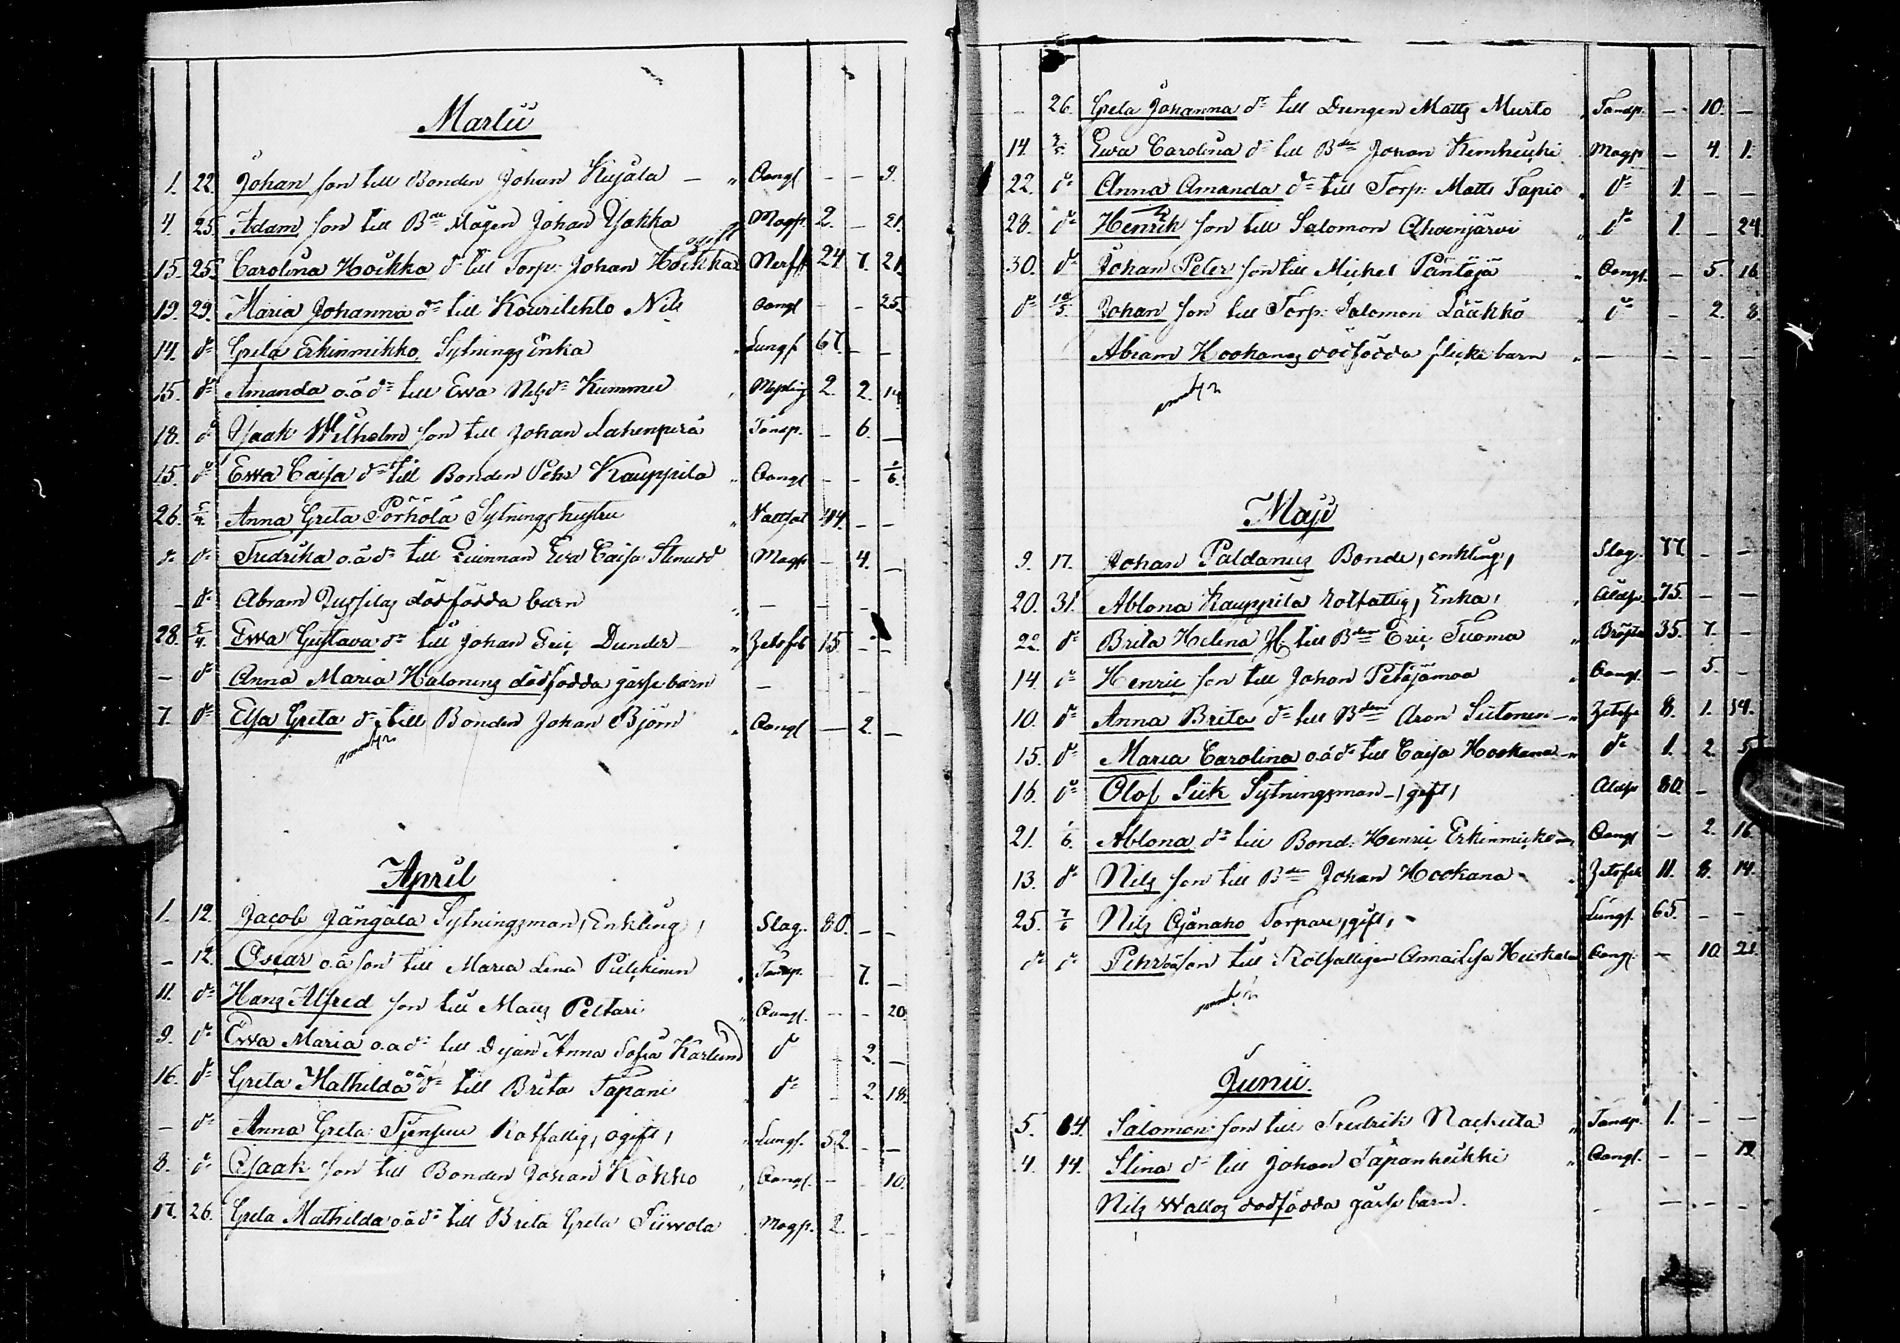 Martii
1. 22. Johan son till Bonden Johan Kujala — " Qvngf — — 9.
4. 25. Adam son till B:de Mågen Johan Yakka Magp. 2. — 21.
ogift
15. 25. Carolina Hoikka d:r till Torp: Johan Hoikka Nerff 24 7. 21.
19. 29. Maria Johanna d:r till Kourilehto Nils Qvngf — — 25.
14. d:o Greta Erkinmikko Sytnings Enka " Lungf. 67. — —
15. d:o Amanda o.ä d:r till Ewa Nilsd:r Kummu 2. 2. 14.
18. d:o Isaak Wilhelm son till Johan Lahenperä Tandsp. — 6. —
15. d:o Ewa Caisa d:r till Bonden Pehr Kauppila " Qvngf — —
26. 5/4. Anna Greta Pörhölä Sytningshustru " Vattsot 44. — —
d:o d:o Fredrika o.ä d:r till Qvinnan Eva Caisa Stenudd " Magp. — 4. —
— d:o Abram Jussilas dödfödda barn " — — —
28. 5/4. Ewa Gustava d:r till Johan Eric Dunder — " 15. — —
— d:o Anna Maria Halonens dödfödda gåsse barn — — —
7. d:o Elsa Greta d:r till Bonden Johan Björn " Qvngf — 2. —
April
1. 12. Jacob Jängälä Sytningsman, Enkling, Slag. 80. — —
— 12. Oscar o.ä son till Maria Lena Pulckinen " Tandsp. 7. —
11. d:o Hans Alfred son till Matts Peltari " Qvngf. — — 20.
9. d:o Ewa Maria o.ä d:r till Dejan Anna Sofia Karlund d:o 2. —
16. d:o Greta Mathilda o.ä d:r till Brita Tapani " d:o 2 18.
— d:o Anna Greta Rotfattig, ogift, " Lungs. 52. — —
8. d:o Isaak son till Bonden Johan Kokko " Qvngf. — — 10.
17. 26. Greta Mathilda o.ä d:r till Brita Greta Siiwola " Magp. 2. — —
— 26. Greta Johanna d:r till Drengen Matts Murto " Tandsp. — 10. —
14. 3/5 Ewa Carolina d:r till B:den Johan Kemheicki " Magp — 4. 1.
22. d:o Anna Amanda d:r till Torp: Matts Tapio " d:o 1. — —
28. d:o Henrik son till Salomon Ahvenjärvi " d:o 1. — 24.
30. d:o Johan Peter son till Michel Päntäjä " Qvngf. — 5. 16.
d:o 10/5. Johan son till Torp: Salomon Laukko " d:o — 2. 8.
Abram Hookanas dödfödda flicke barn " — — — —
Maji
9. 17. Johan Paldanus Bonde, enkling, Slag. 77. — —
20. 31. Ablona Kauppila Rotfattig, Enka, " Åldsv. 75. — —
22. d:o Brita Helena H: till B:den Eric Tuoma " 35. 7. —
14. d:o Henric son till Johan Petäjämaa " Qvngf. — 5. —
10. d:o Anna Brita d:r till B:den Aron Siitonen — " 8. 1. 14.
15. d:o Maria Carolina o.ä d:r till Caisa Hookana — " d:o 1. 2. 5.
16. d:o Olof Siik Sytningsman —, gift, Åldsv 80. —
21. 1/6. Ablona d:r till Bond: Henric Erkinmicko — Qvngf — 2. 16.
13. d:o Nils son till B:de Johan Hookana — 11. 8. 14.
25. 7/6 Nils Ajanako Torpare, gift, — Lungf. 65. — —
d:o d:o Pehr oä son till Rotfattigen Anna Lisa Heiskala Qvngf. — 10. 21.
Junii.
5. 14. Salomon son till Fredrik Nackuta " Tandsp. 1. — —
4. 14. Stina d:r till Johan Tapanheikki " Qvngf. — —
Nils Wallas dödfödda gåsse barn. — — — —